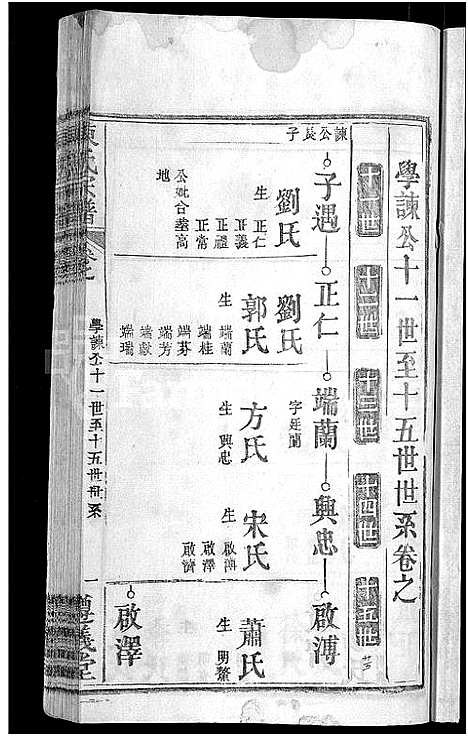 學諫公十一世至十五世世系卷之
十一世 十二世 十三世 十四世 十五世
諫公長子
子遇 正仁 端蘭 興忠 啟溥
字廷蘭
劉氏 劉氏
生 正仁 正義 正禮 正常
公妣合葬高地
郭氏
生 端蘭 端桂 端芬 端芳 端獻 端瑞
方氏
生 興忠
宋氏
生 啟溥 啟澤 啟濟
蕭氏
生 明鰲
啟澤
陳氏宗譜 卷之
學諫公十一世至十五世世系
一